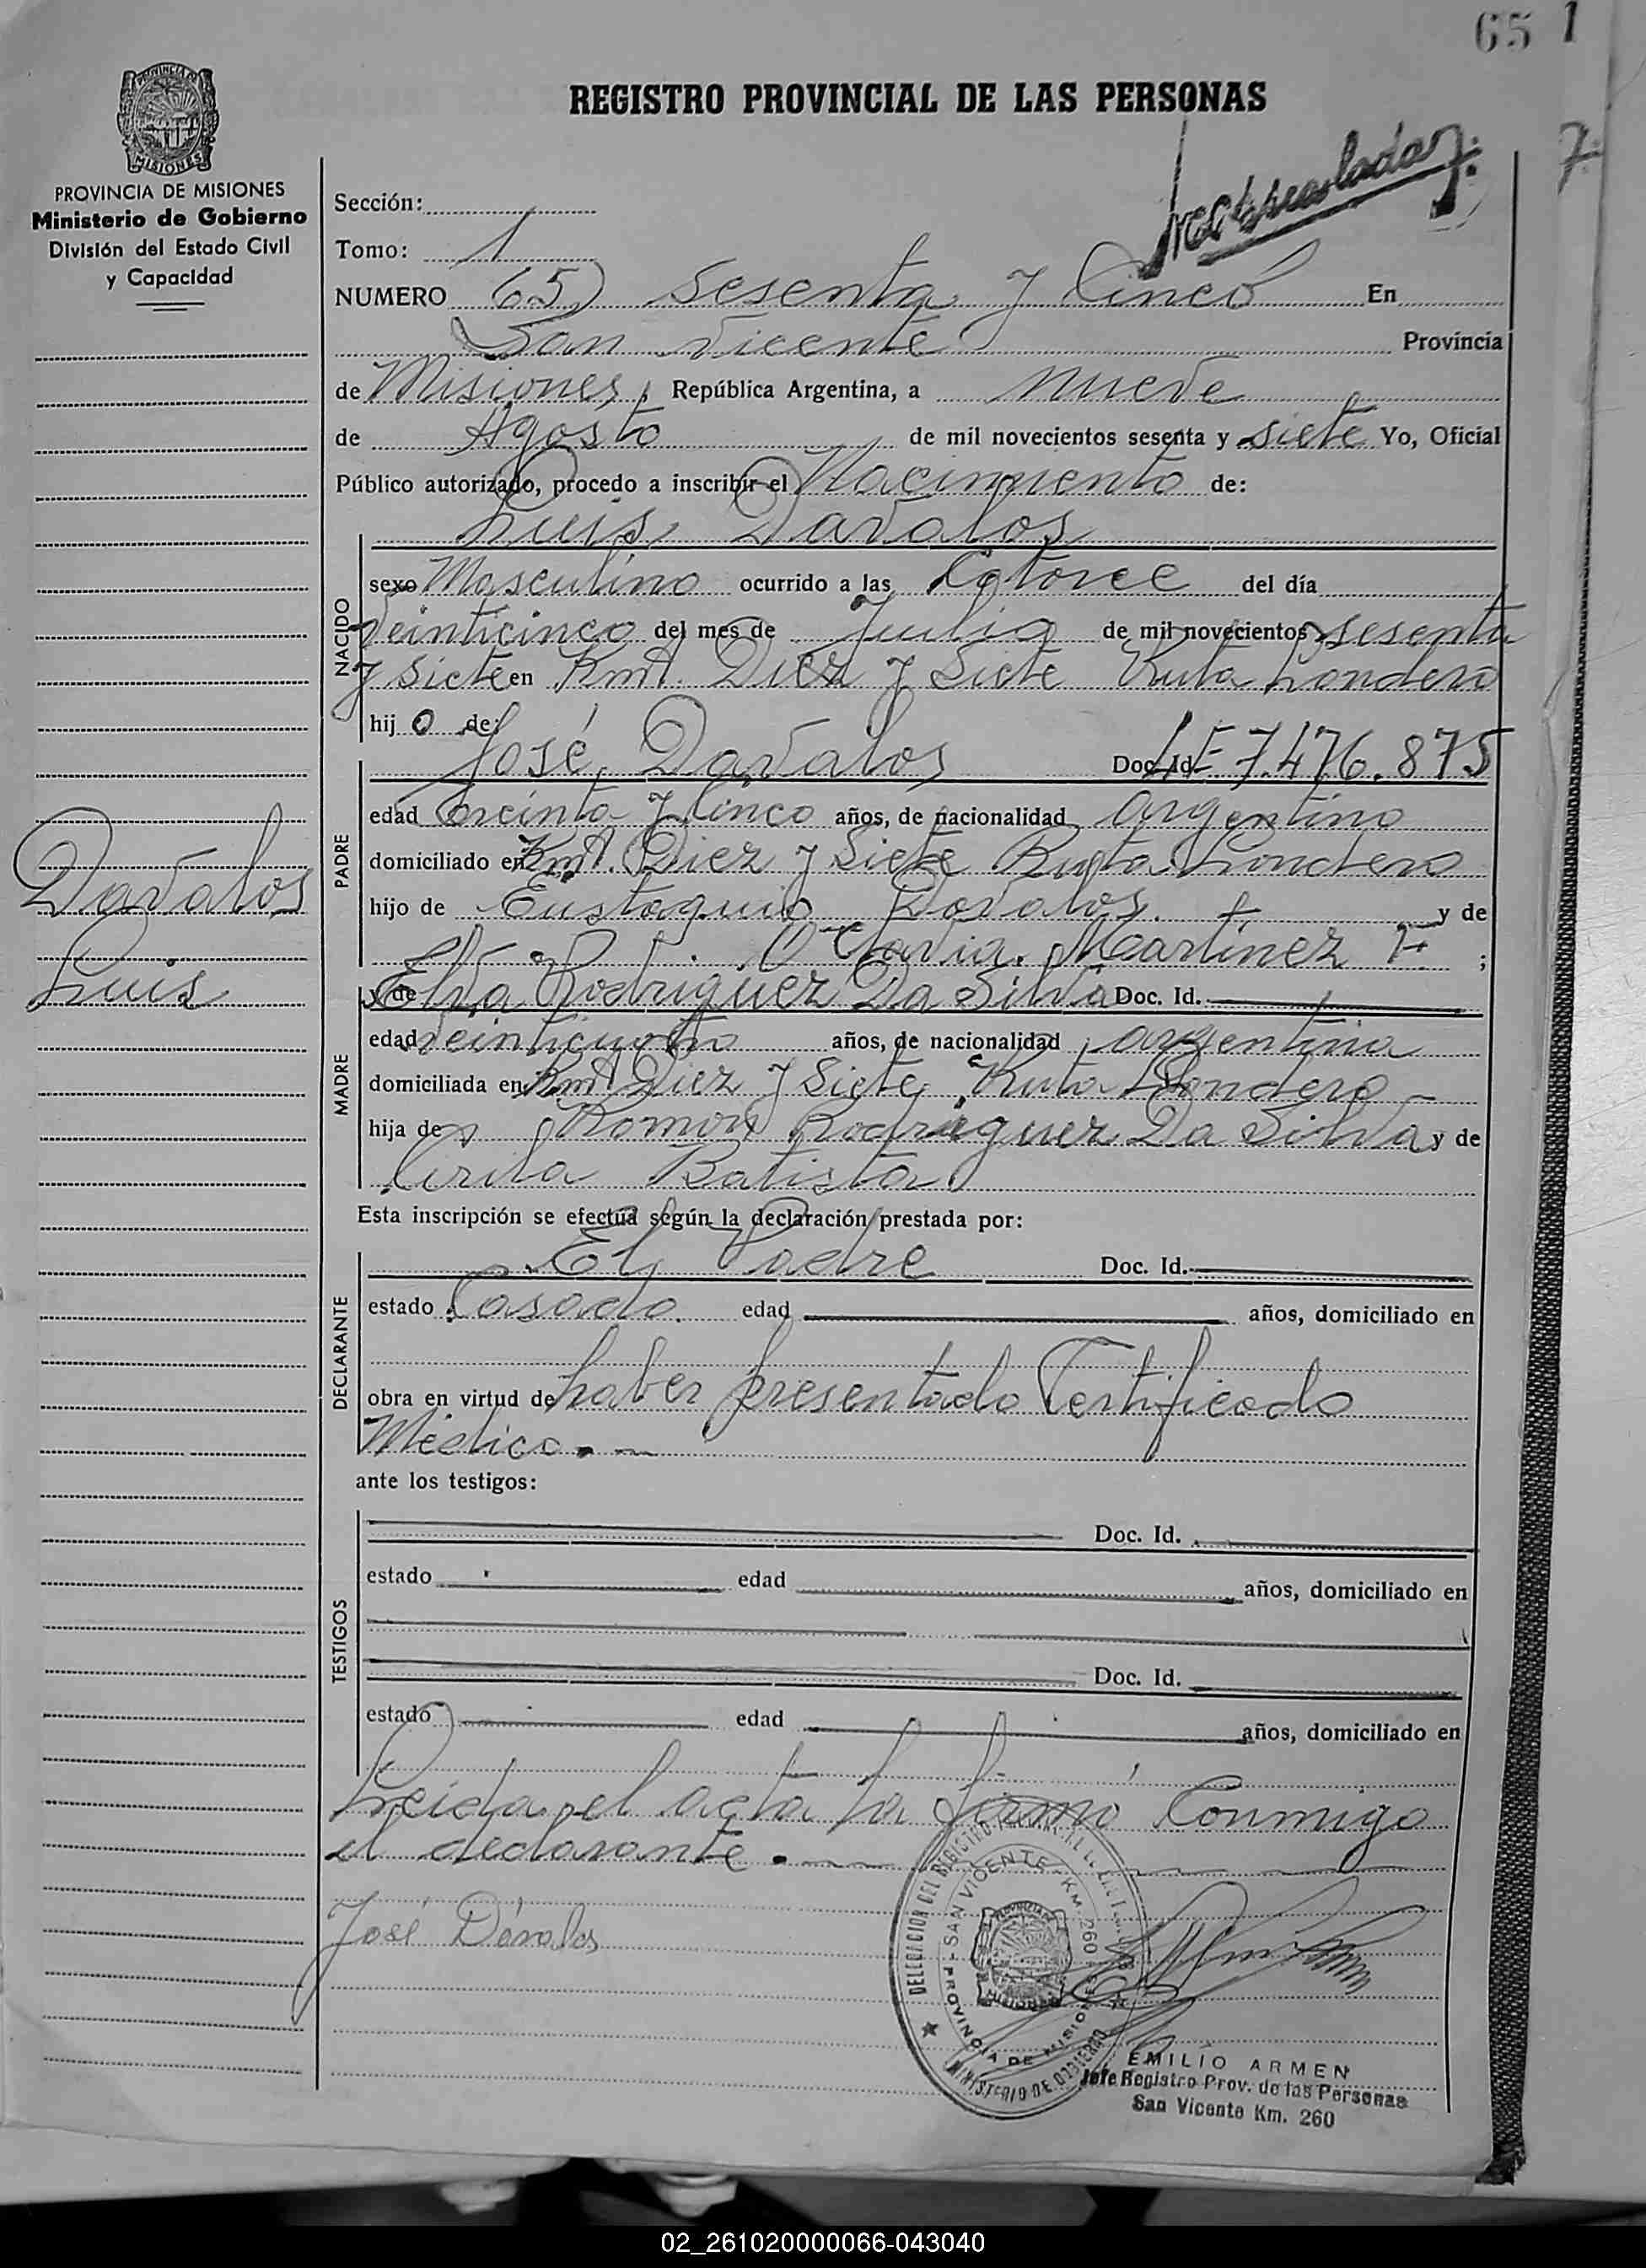 65 1
REGISTRO PROVINCIAL DE LAS PERSONAS
7.
MISIONES
PROVINCIA DE MISIONES
Ministerio de Gobierno
División del Estado Civil
y Capacidad
Sección:
Tomo: 1
NUMERO 65) Sesenta y Cinco En
San Vicente Provincia
de Misiones, República Argentina, a nueve
de Agosto de mil novecientos sesenta y siete Yo, Oficial
Público autorizado, procedo a inscribir el Nacimiento de:
Luis Davalos
NACIDO
sexo Masculino ocurrido a las Catorce del día
Veinticinco del mes de Julio de mil novecientos sesenta
y siete en Kmt. Diez y Siete Ruta Londero
hijo de:
PADRE
José Davalos Doc. Id. LE 7.476.875
edad treinta y Cinco años, de nacionalidad argentino
domiciliado en Kmt. Diez y Siete Ruta Londero
hijo de Eustaquio Davalos. + y de
Martinez F. ;
Davalos
Luis
MADRE
y de Elva Rodriguez Da Silva Doc. Id.
edad Veinticuatro años, de nacionalidad argentina
domiciliada en Kmt Diez y Siete Ruta Londero
hija de Ramon Rodriguez Da Silva y de
Batista
Esta inscripción se efectúa según la declaración prestada por:
DECLARANTE
El Padre Doc. Id.
estado Casado. edad años, domiciliado en
obra en virtud de haber presentado Certificado
Médico.
ante los testigos:
TESTIGOS
Doc. Id.
estado edad años, domiciliado en
Doc. Id.
estado edad años, domiciliado en
Leida el acta la firmó Conmigo
el declarante.
José Dávalos
DELEGACION DEL REGISTRO
SAN VICENTE - KM. 260
PROVINCIA DE MISIONES
MINISTERIO DE GOBIERNO
EMILIO ARMEN
Jefe Registro Prov. de las Personas
San Vicente Km. 260
02_261020000066-043040